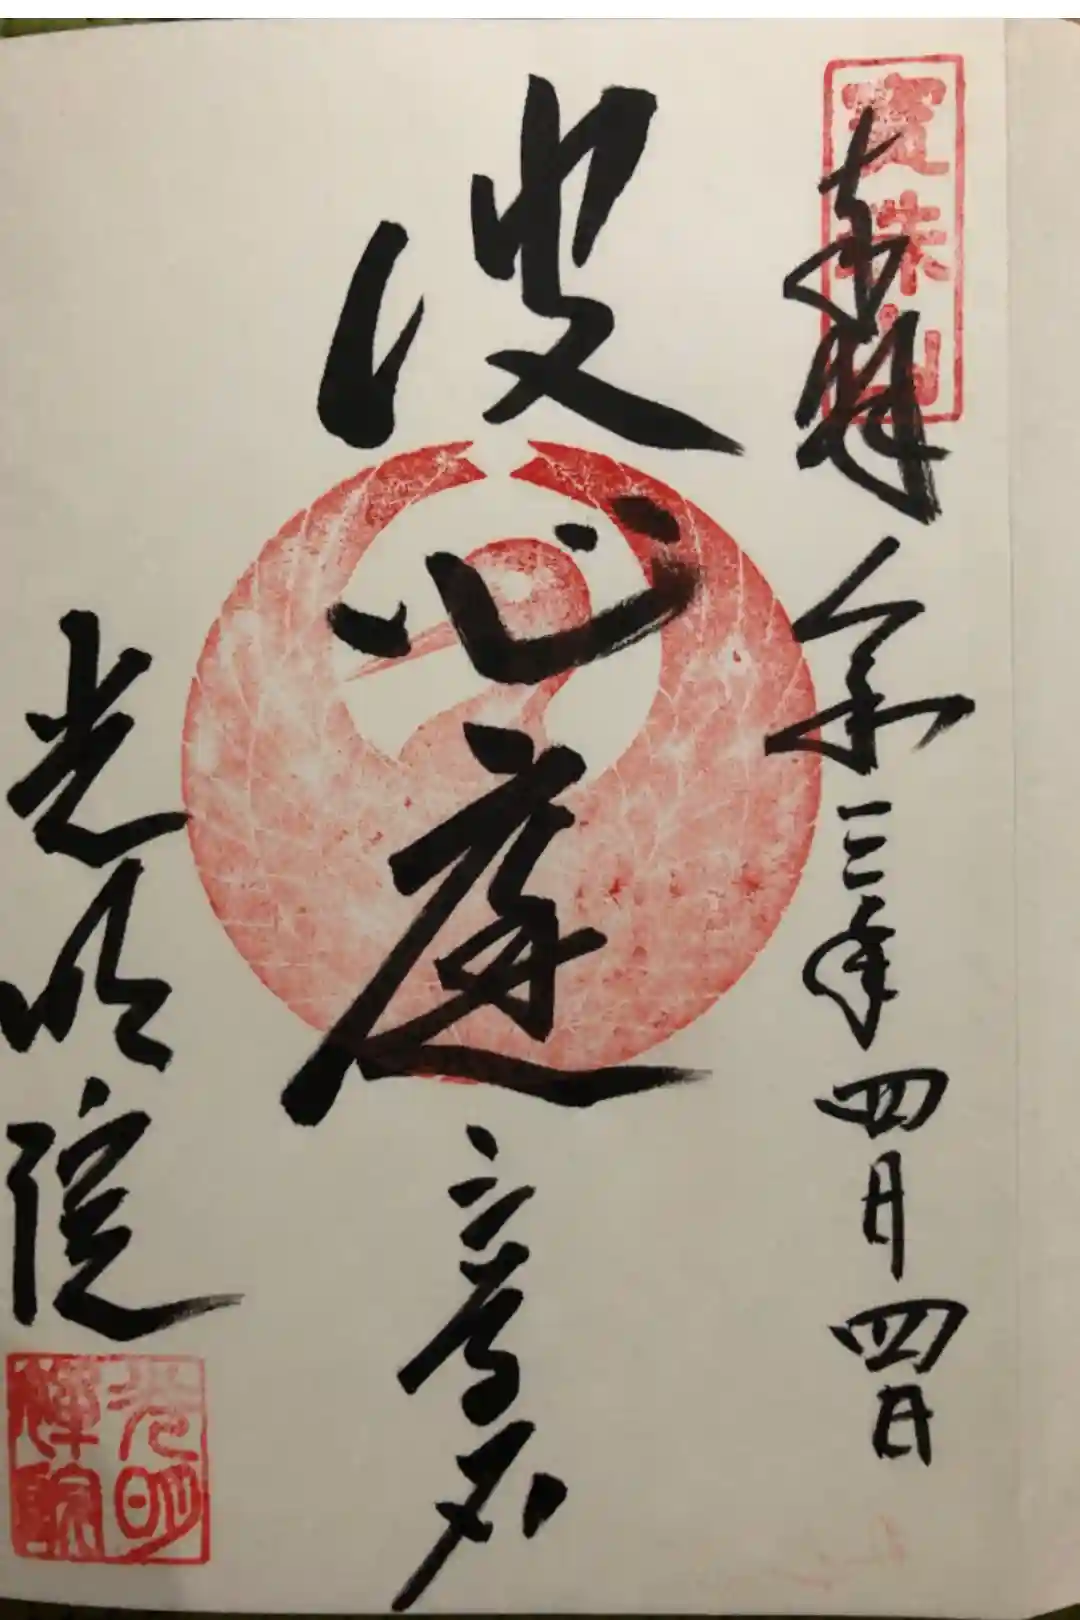 寶珠山
奉拜 令和三年四月四日
波心庭
光明院
光明禅院